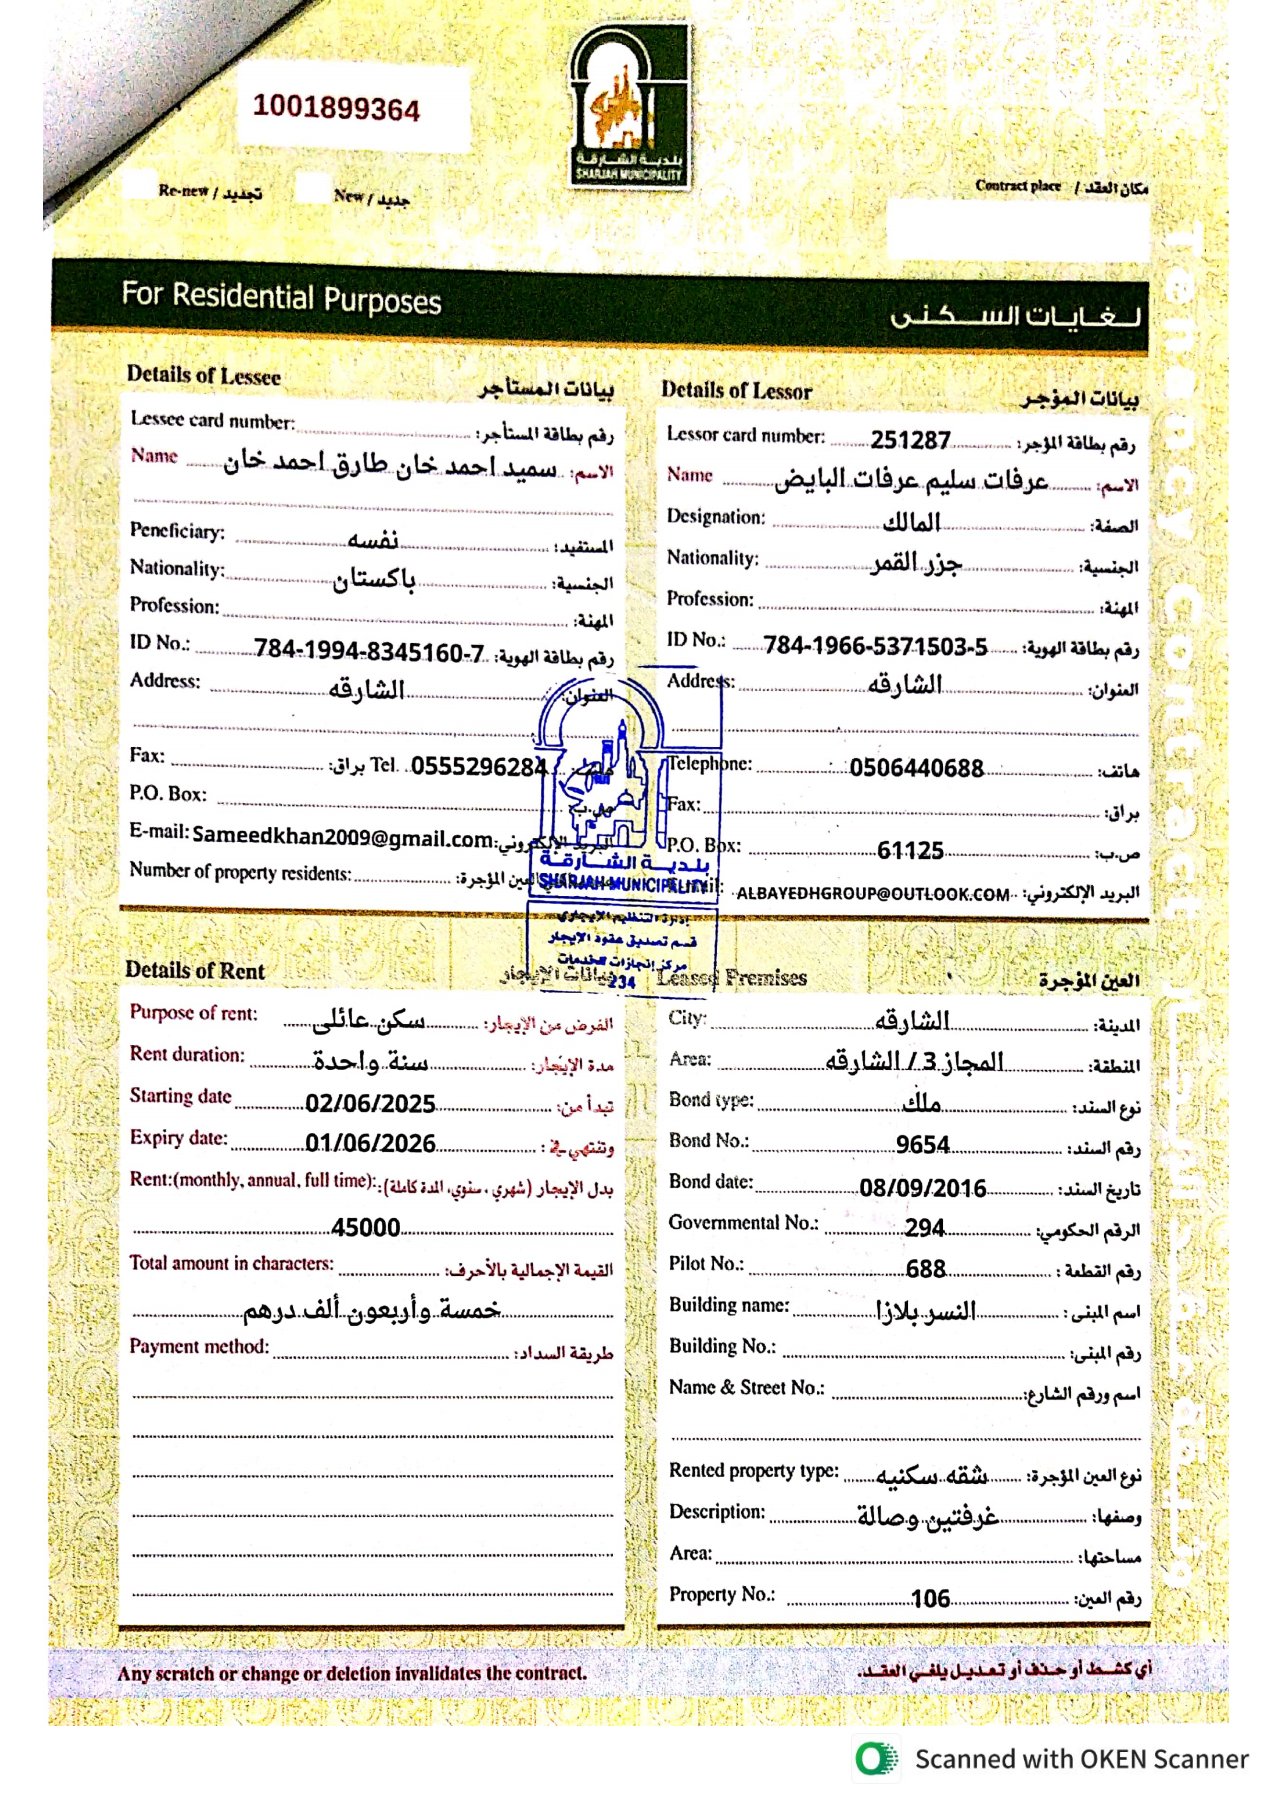 1001899364
بلدية الشارقة
SHARJAH MUNICIPALITY
Re-new / تجديد
New / جديد
Contract place / مكان العقد
For Residential Purposes
لغايات السكنى
Tenancy Contract
Details of Lessee بيانات المستأجر
Lessee card number: رقم بطاقة المستأجر:
Name سميد احمد خان طارق احمد خان الاسم:
Peneficiary: نفسه المستفيد:
Nationality: باكستان الجنسية:
Profession: المهنة:
ID No.: 784-1994-8345160-7 رقم بطاقة الهوية:
Address: الشارقه العنوان:
Fax: براق: Tel. 0555296284
P.O. Box: ص.ب:
E-mail: Sameedkhan2009@gmail.com البريد الإلكتروني:
Number of property residents: العين المؤجرة:
Details of Lessor بيانات المؤجر
Lessor card number: 251287 رقم بطاقة المؤجر:
Name عرفات سليم عرفات البايض الاسم:
Designation: المالك الصفة:
Nationality: جزر القمر الجنسية:
Profession: المهنة:
ID No.: 784-1966-5371503-5 رقم بطاقة الهوية:
Address: الشارقه العنوان:
Telephone: 0506440688 هاتف:
Fax: براق:
P.O. Box: 61125 ص.ب:
ALBAYEDHGROUP@OUTLOOK.COM البريد الإلكتروني:
بلدية الشارقة
SHARJAH MUNICIPALITY
إدارة التنظيم الإيجاري
قسم تصديق عقود الإيجار
مركز إنجازات للخدمات
234
Details of Rent بيانات الإيجار
Purpose of rent: سكن عائلى الغرض من الإيجار:
Rent duration: سنة واحدة مدة الإيجار:
Starting date 02/06/2025 تبدأ من:
Expiry date: 01/06/2026 وتنتهي في:
Rent:(monthly, annual, full time): بدل الإيجار (شهري، سنوي، المدة كاملة):
45000
Total amount in characters: القيمة الإجمالية بالأحرف:
خمسة وأربعون ألف درهم
Payment method: طريقة السداد:
Leased Premises العين المؤجرة
City: الشارقه المدينة:
Area: المجاز 3 / الشارقه المنطقة:
Bond type: ملك نوع السند:
Bond No.: 9654 رقم السند:
Bond date: 08/09/2016 تاريخ السند:
Governmental No.: 294 الرقم الحكومي:
Pilot No.: 688 رقم القطعة :
Building name: النسر بلازا اسم المبنى :
Building No.: رقم المبنى:
Name & Street No.: اسم ورقم الشارع:
Rented property type: شقه سكنيه نوع العين المؤجرة:
Description: غرفتين وصالة وصفها:
Area: مساحتها:
Property No.: 106 رقم العين:
Any scratch or change or deletion invalidates the contract.
أي كشط أو حذف أو تعديل يلغي العقد.
Scanned with OKEN Scanner